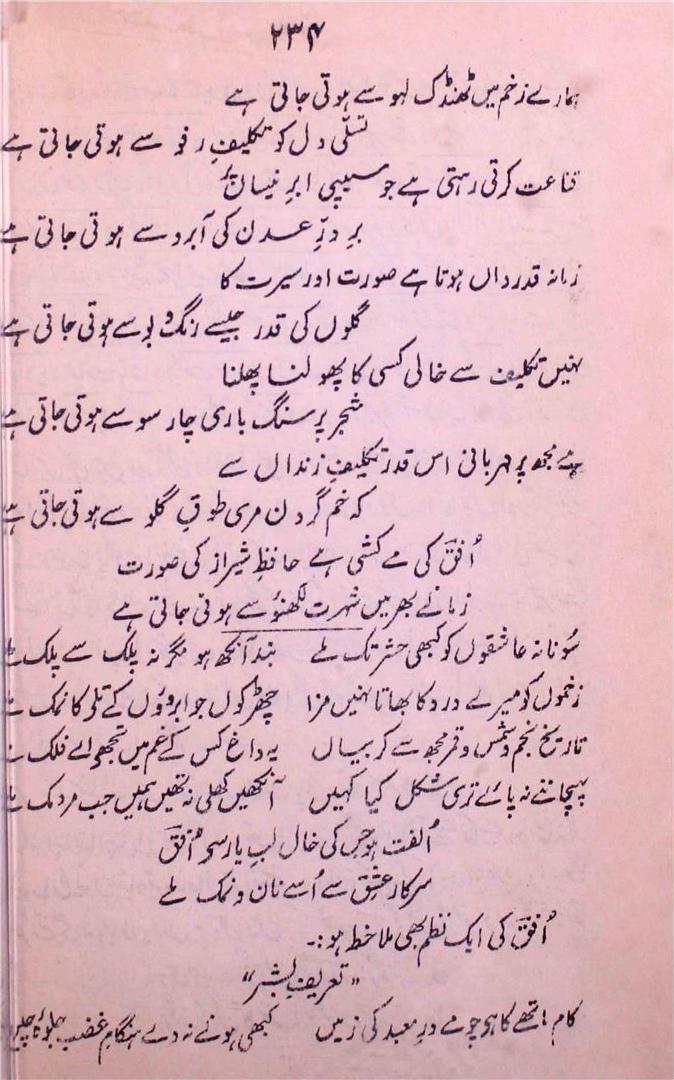 ۲۳۴
ہمارے زخم میں ٹھنڈک لہو سے ہوتی جاتی ہے
تسلّی دل کو تکلیفِ رفو سے ہوتی جاتی ہے
قناعت کرتی رہتی ہے جو سیپی ابرِ نیساں پر
دُرِ عدن کی آبرو سے ہوتی جاتی ہے
زمانہ قدرداں ہوتا ہے صورت اور سیرت کا
گلوں کی قدر جیسے رنگ و بو سے ہوتی جاتی ہے
نہیں تکلیف سے خالی کسی کا پھولنا پھلنا
شجر پر سنگ باری چار سو سے ہوتی جاتی ہے
ہے مجھ پر مہربانی اس قدر تکلیفِ زنداں سے
کہ خم گردن مری طوقِ گلو سے ہوتی جاتی ہے
اُفقؔ کی مے کشی ہے حافظِ شیراز کی صورت
زمانے بھر میں شہرت لکھنؤ سے ہوتی جاتی ہے
سُونا نہ عاشقوں کو کبھی حشر تک ملے بند آنکھ ہو مگر نہ پلک سے پلک ملے
زخموں کو میرے درد کا بھاتا نہیں مزا چھڑکوں جو ابروؤں کے تلے کا نمک ملے
تاریخ نجم و شمس و قمر مجھ سے کر بیاں یہ داغ کس کے غم میں تجھے اے فلک ملے
پہچاننے نہ پائے تری شکل کیا کہیں آنکھیں کھلی نہ تھیں ہمیں جب مردمک ملے
اُلفت ہو جس کی خالِ لبِ یار سے اُفقؔ
سرکارِ عشق سے اُسے نان و نمک ملے
اُفقؔ کی ایک نظم بھی ملاحظہ ہو:۔
"تعریفِ بشر"
کام ماتھے کا ہو چومے درِ معبد کی زمیں کبھی ہونے نہ دے ہنگامِ غضب